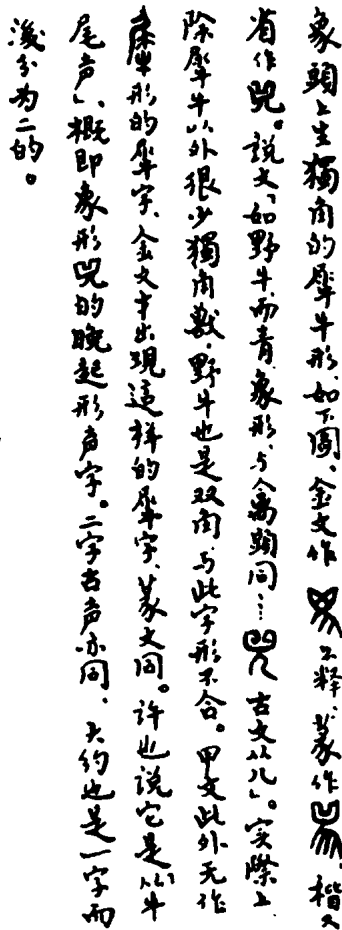 象頭上生獨角的犀牛形，如下圖，金文作 不释，篆作 ，楷文
省作兕。說文「如野牛而青，象形，与禽頭同…… 古文从儿」。实際上
除犀牛以外很少獨角獸，野牛也是双角，与此字形不合。甲文此外无作
犀形的犀字，金文才出現這样的犀字，篆文同。许也说它是「从牛
尾声」，概即象形兕的晚起形声字。二字古声亦同，大约也是一字而
後分为二的。